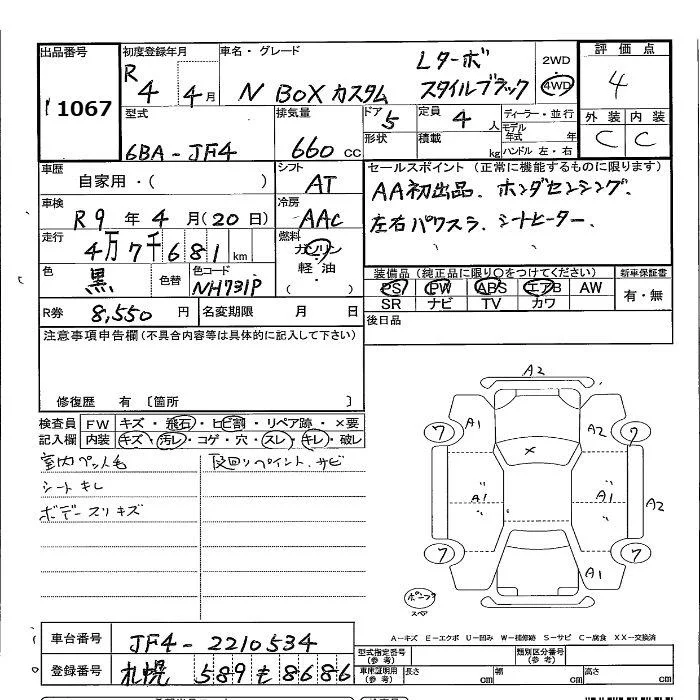 出品番号 初度登録年月 車名・グレード 評価点
1067
R4 4月
N BOX カスタム Lターボ スタイルブラック
2WD
4WD
4
型式 排気量 ドア 定員 ディーラー・並行 外装 内装
6BA-JF4 660cc 5 4人
形状 積載 kg
モデル年式 年
ハンドル 左・右
C C
車歴 シフト
自家用・( ) AT
セールスポイント (正常に機能するものに限ります)
AA初出品、ホンダセンシング、
左右パワスラ、シートヒーター、
車検 冷房
R9年4月(20日) AAC
走行 燃料
4万7千681km
ガソリン
軽油
・( )
色 色替 色コード
黒 NH731P
装備品(純正品に限り○をつけてください) 新車保証書
PS PW ABS エアB AW
SR ナビ TV カワ
有・無
R券 8,550円 名変期限 月 日
後日品
注意事項申告欄(不具合内容等は具体的に記入して下さい)
修復歴 有 〔箇所 〕
検査員記入欄
FW キズ・飛石・ヒビ割・リペア跡・×要
内装 キズ・汚レ・コゲ・穴・スレ・キレ・破レ
室内ペット毛
シートキレ
ボデースリキズ
下回りペイント、サビ
A2
7 A1 A2 7
×
A1 A1 A2
7 7
A1
スペア
A-キズ E-エクボ U-凹み W-補修跡 S-サビ C-腐食 XX-交換済
車台番号 JF4-2210534
登録番号 札幌 589 も 8686
型式指定番号(参考) 類別区分番号(参考)
車検証明用(参考) 長さ cm 幅 cm 高さ cm